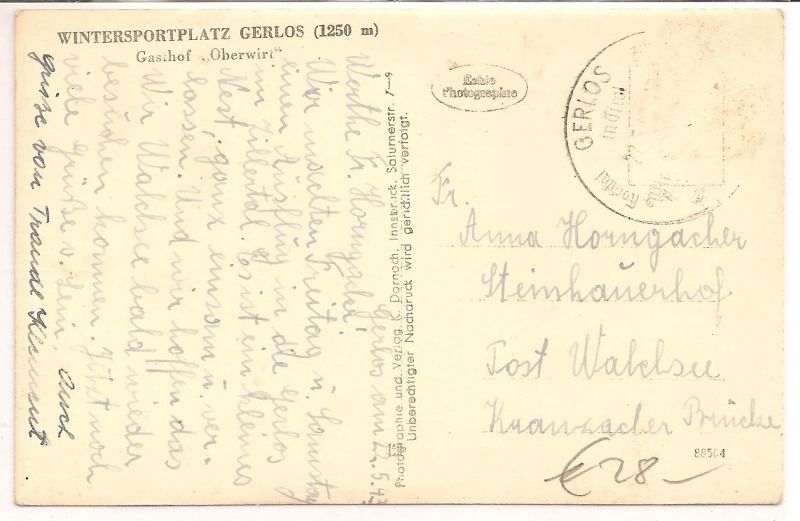 WINTERSPORTPLATZ GERLOS (1250 m)
Gasthof „Oberwirt"
Gerlos am 22.5.43
Werthe Fr. Horngacher!
Wir machten Freitag u. Samstag
einen Ausflug in die Gerlos
im Zillertal. Es ist ein kleines
Nest, ganz einsam u. ver-
lassen. Und wir hoffen das
Wir Walchsee bald wieder
besuchen können. Jetzt noch
viele Grüße v.
Auch
Grüße von Traudl Klement
Photographie und Verlag K. Dornach, Innsbruck, Saturnerstr. 7—9
Unberechtigter Nachdruck wird gerichtlich verfolgt.
Echte
Photographie
GERLOS
Fr.
Anna Horngacher
Steinhauerhof
Post Walchsee
Kranzacher Brücke
88504
€28—